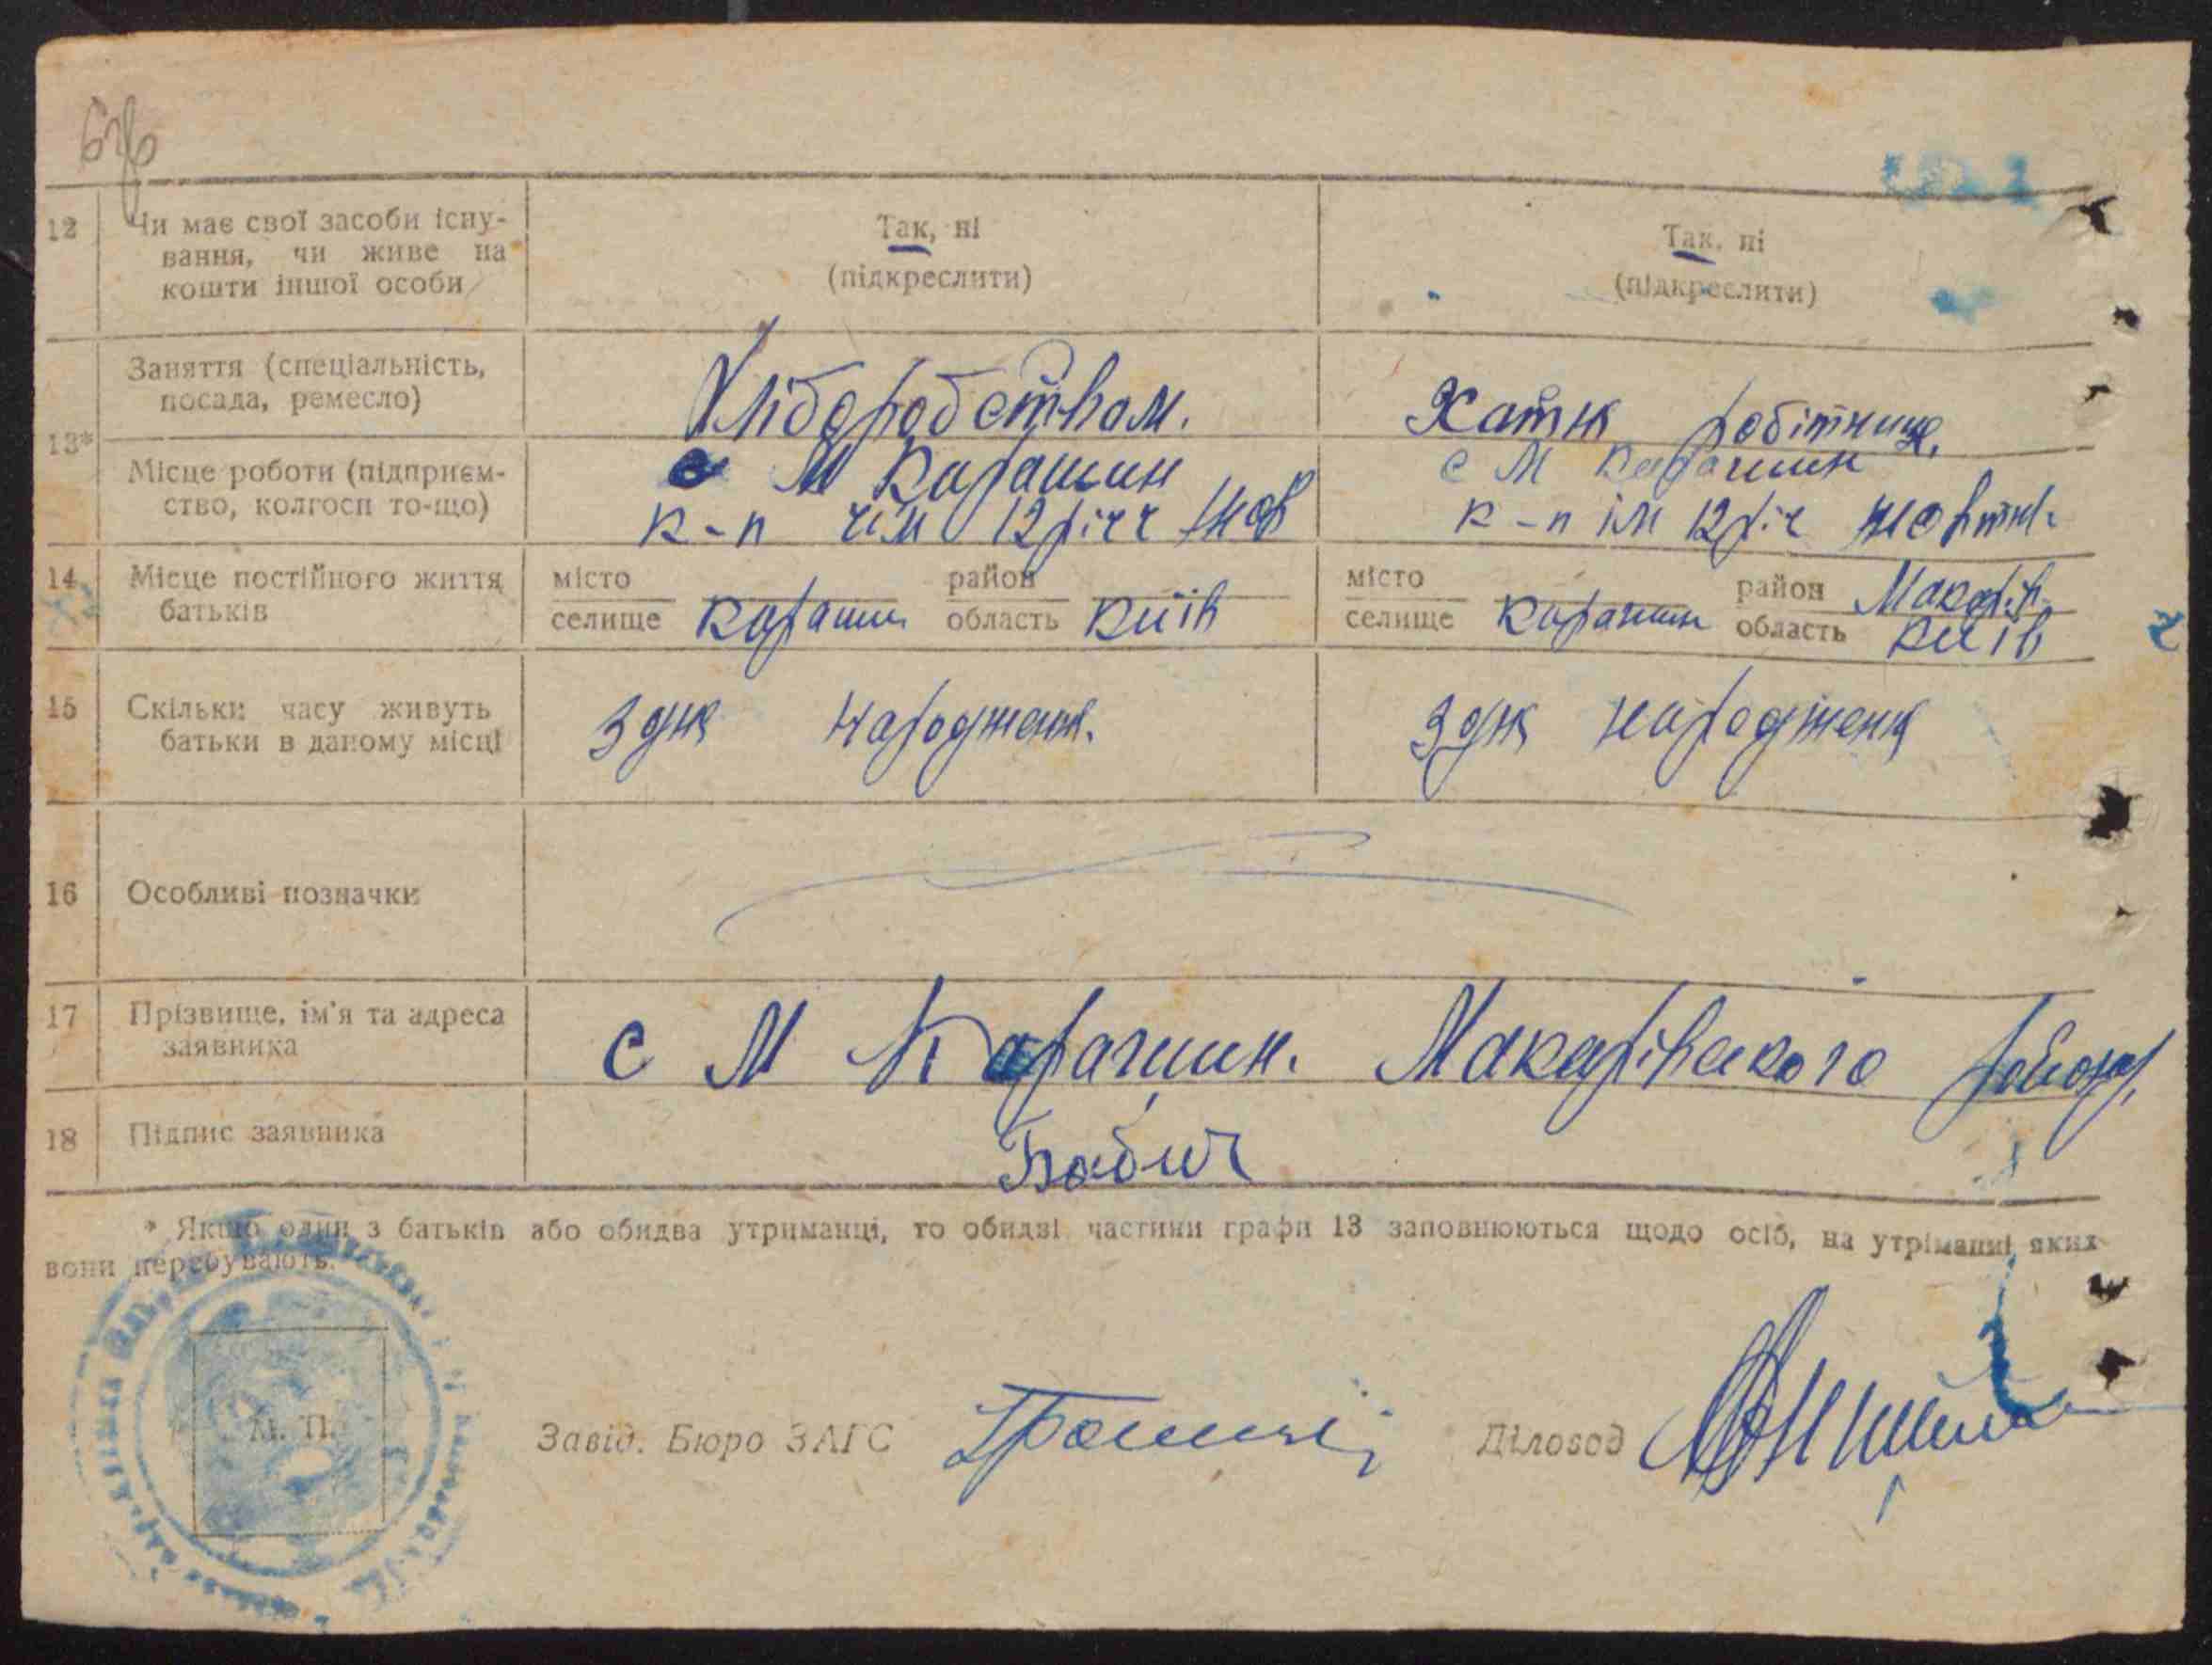 12 Чи має свої засоби існу-
вання, чи живе на
кошти іншої особи
Так, ні
(підкреслити)
Так, ні
(підкреслити)
13*
Заняття (спеціальність,
посада, ремесло)
Хліборобством.
Хатня робітниця,
Місце роботи (підприєм-
ство, колгосп то-що)
с М Карашин
к-п 12 річч Жов
с М Карашин
к-п ім 12 річ жовтн.
14 Місце постійного життя
батьків
місто
селище Карашин
район
область Київ
місто
селище Карашин
район Макарів
область Київ
15 Скільки часу живуть
батьки в даному місці
З дня народження.
З дня народженя
16 Особливі позначки
17 Прізвище, ім'я та адреса
заявника
с М Карашин. Макарівського району,
18 Підпис заявника
Бабич
* Якщо один з батьків або обидва утриманці, то обидві частини графи 13 заповнюються щодо осіб, на утріманні яких
вони перебувають.
М. П.
Завід. Бюро ЗАГС
Діловод